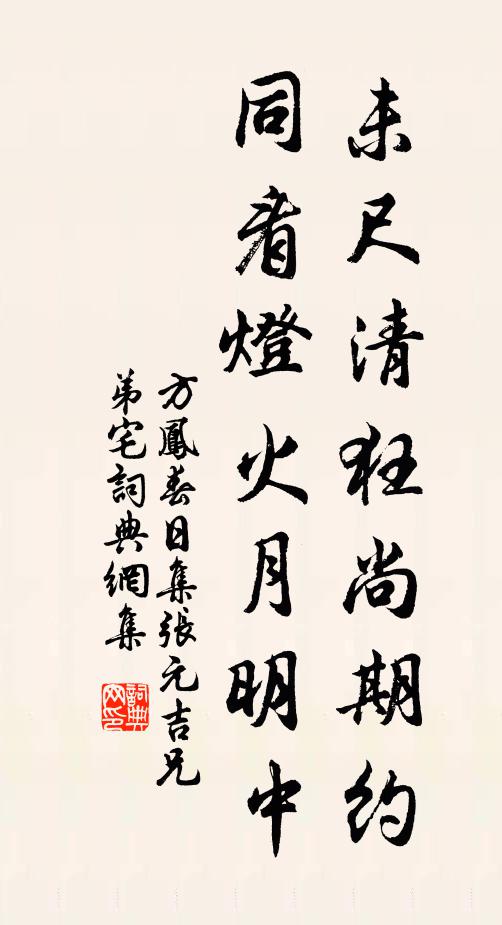 未尺清狂尚期約
同看燈火月明中
方鳳春日集張元吉兄
弟宅詞典網集
詞典网印